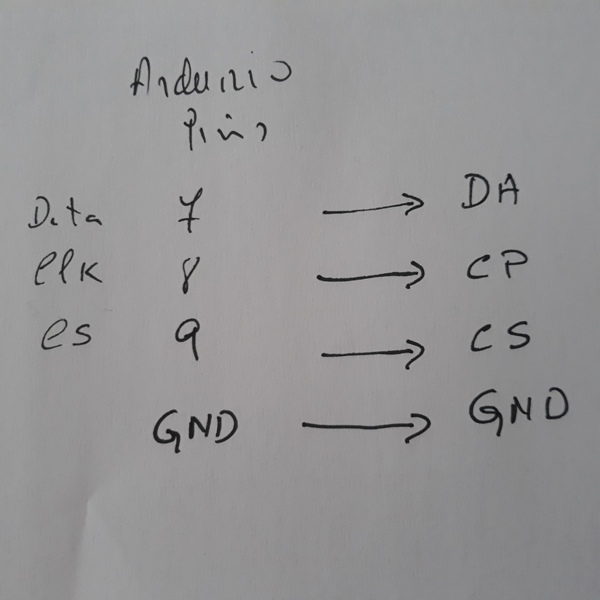 Arduino
Pins
Data 7 → DA
Clk 8 → CP
CS 9 → CS
GND → GND